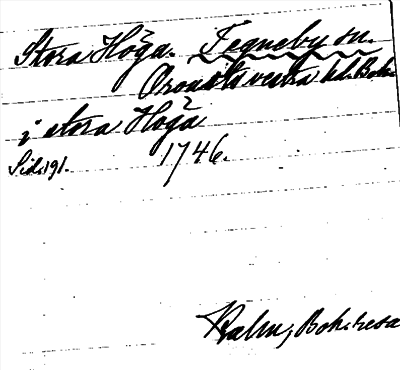 Stora Höga. Tegneby sn.
Orousts västra hd. Boh.
i stora Höga
1746.
Sid. 191.
Kalm, Boh. resa